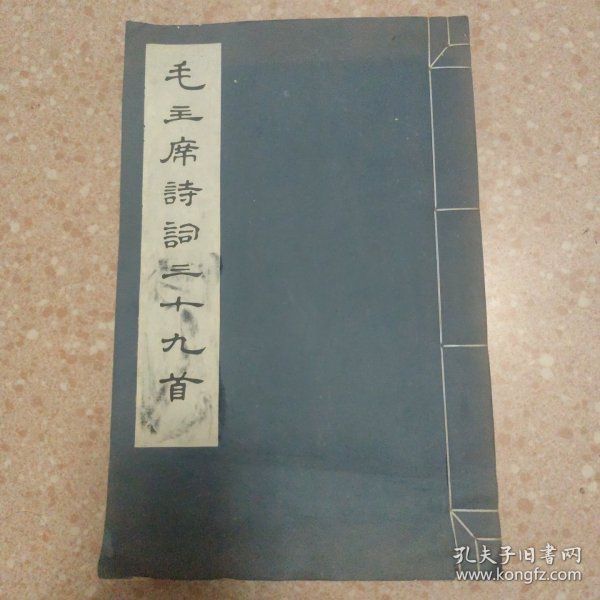 毛主席詩詞三十九首
孔夫子旧书网
www.kongfz.com